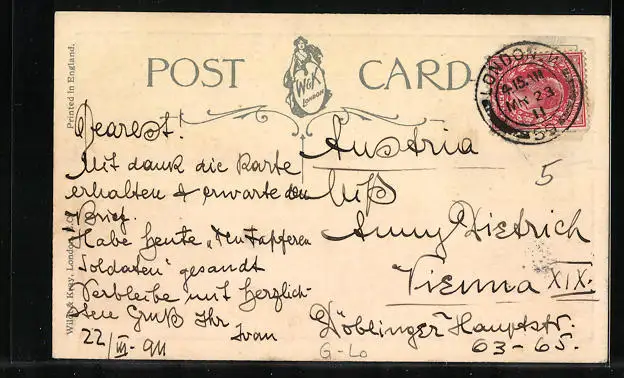 POST CARD
W&K
London
Printed in England.
Wildt & Kray, London, E.C.
LONDON. W.
4.15 AM
MR 23
11
53
Dearest!
Mit dank die Karte
erhalten & erwarte den
Brief.
Habe heute „den tapferen
Soldaten" gesandt
Verbleibe mit herzlich-
sten Gruß Ihr Ivan
22/III-911
Austria
Miß
Anny Dietrich
Vienna XIX.
Döblinger-Hauptstr.
63-65.
5
G-Lo